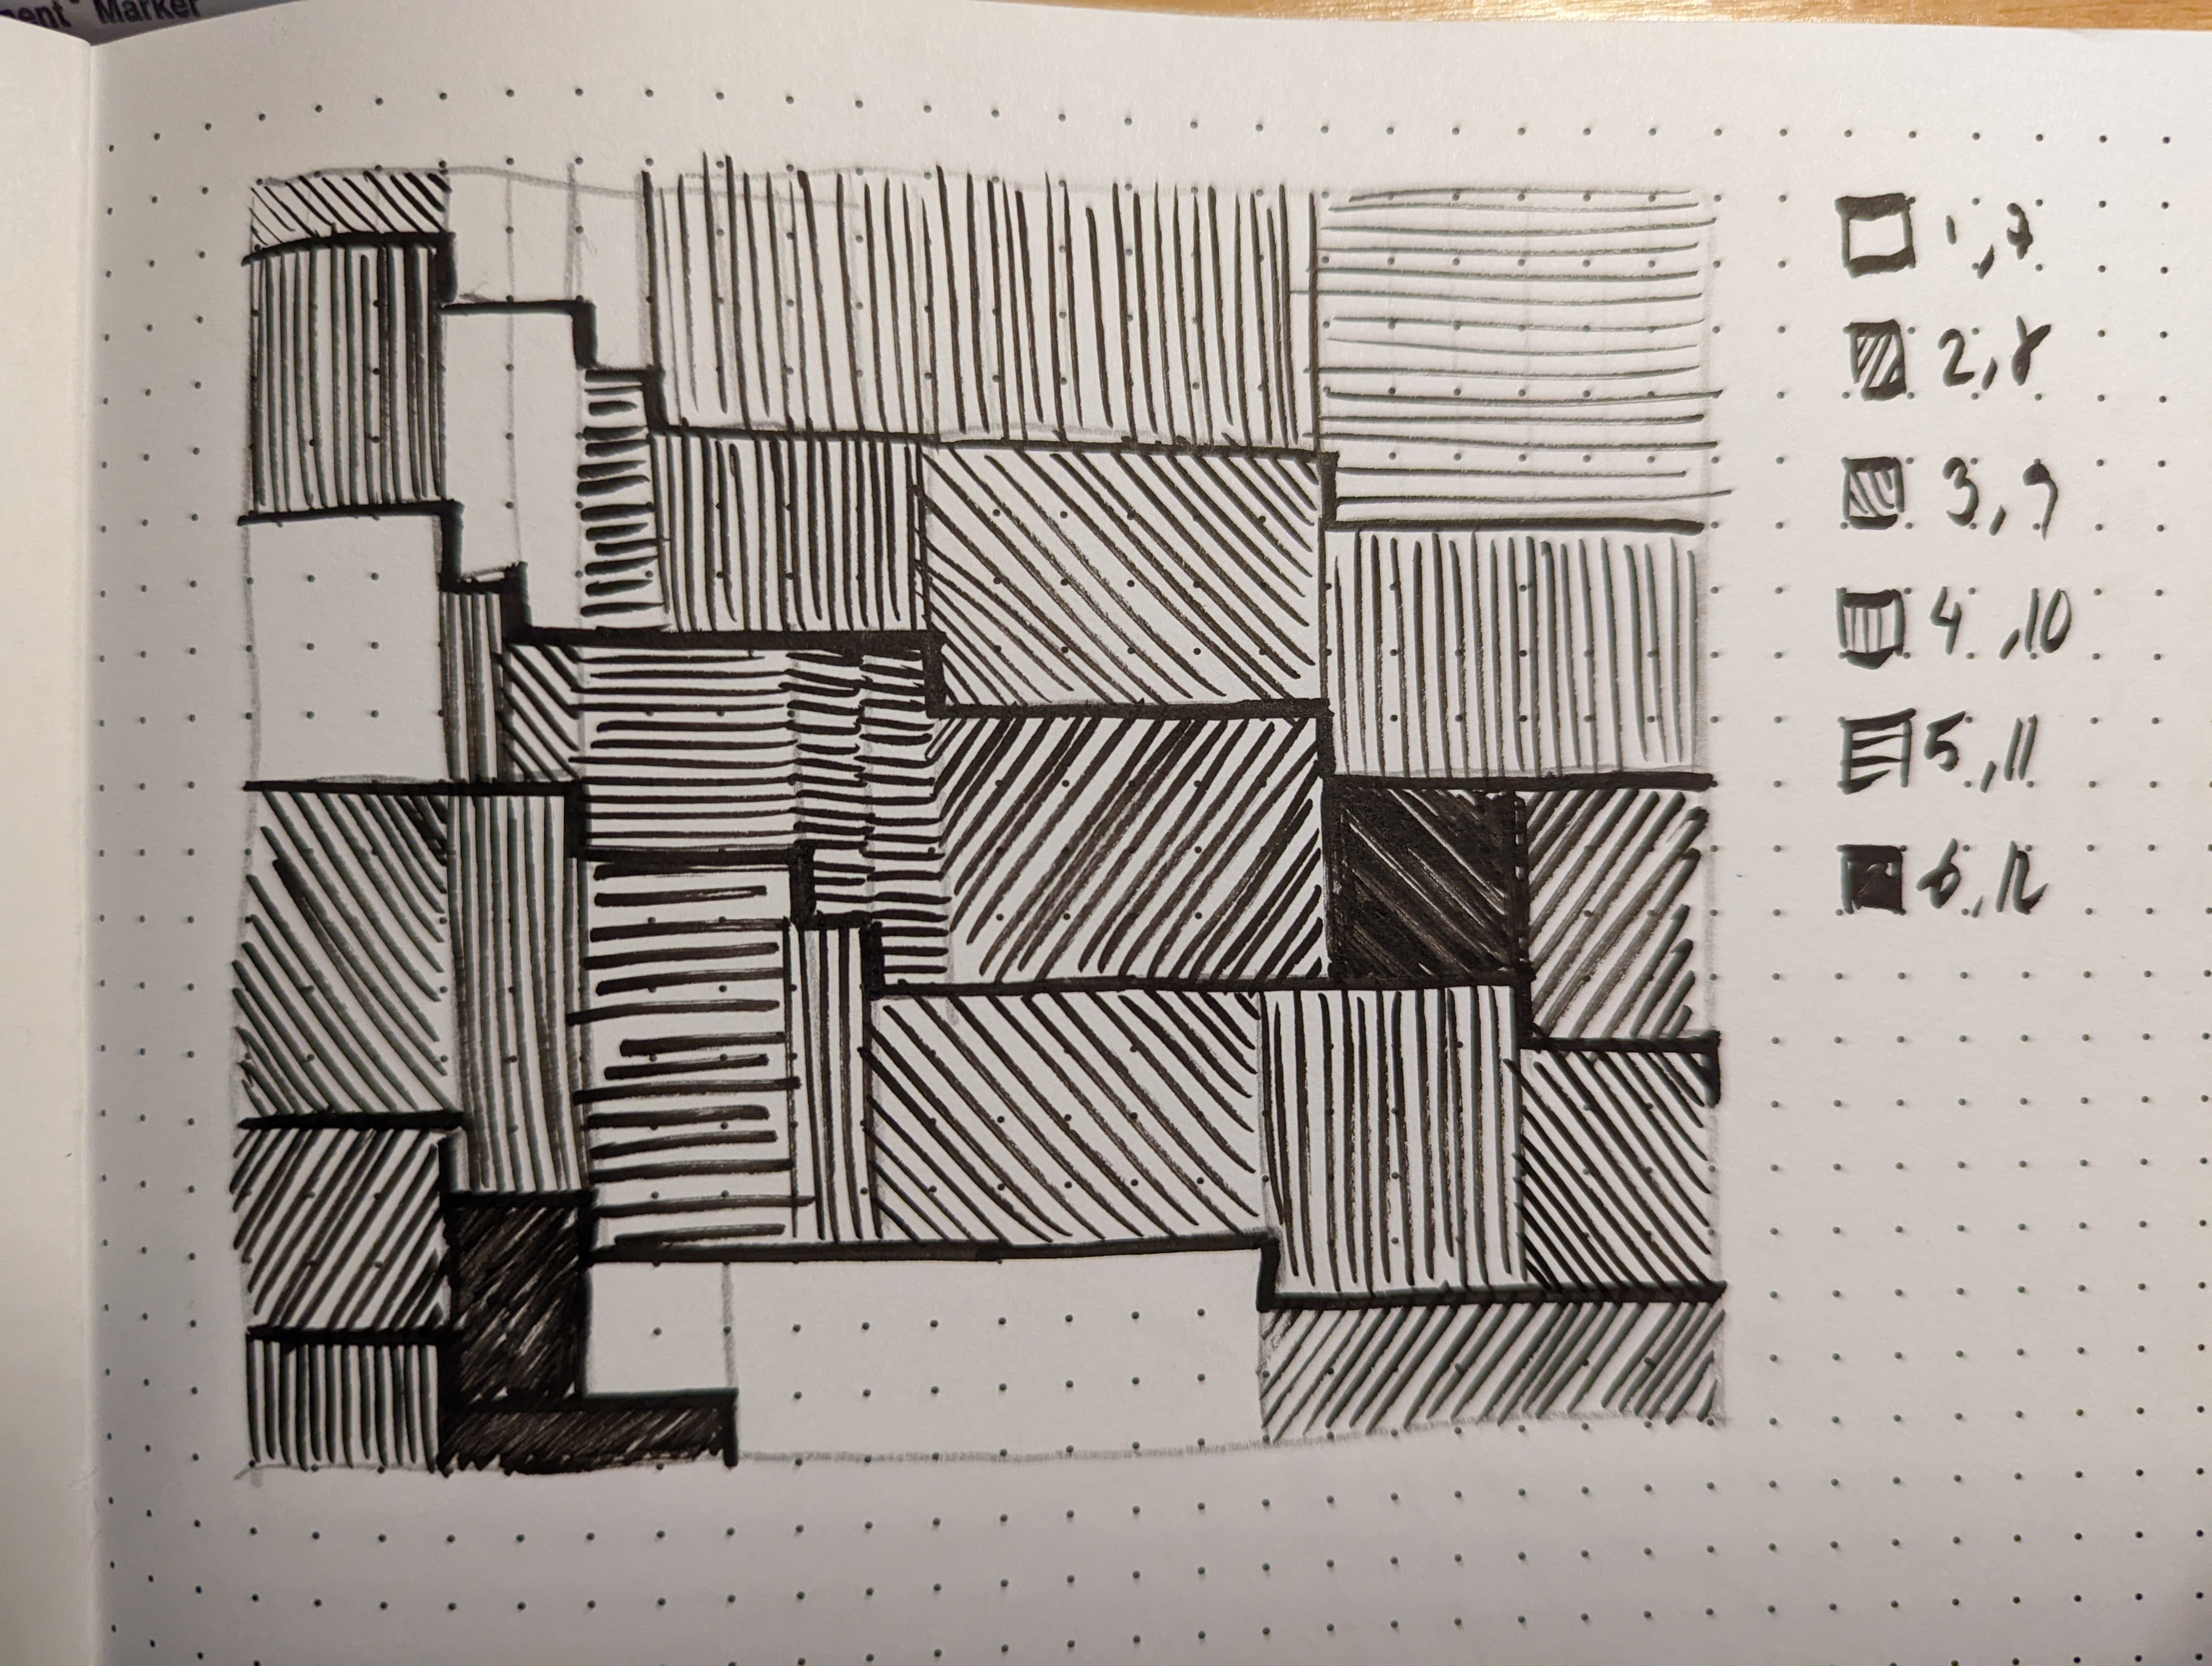 ent Marker
1,7
2,8
3,9
4,10
5,11
6,12